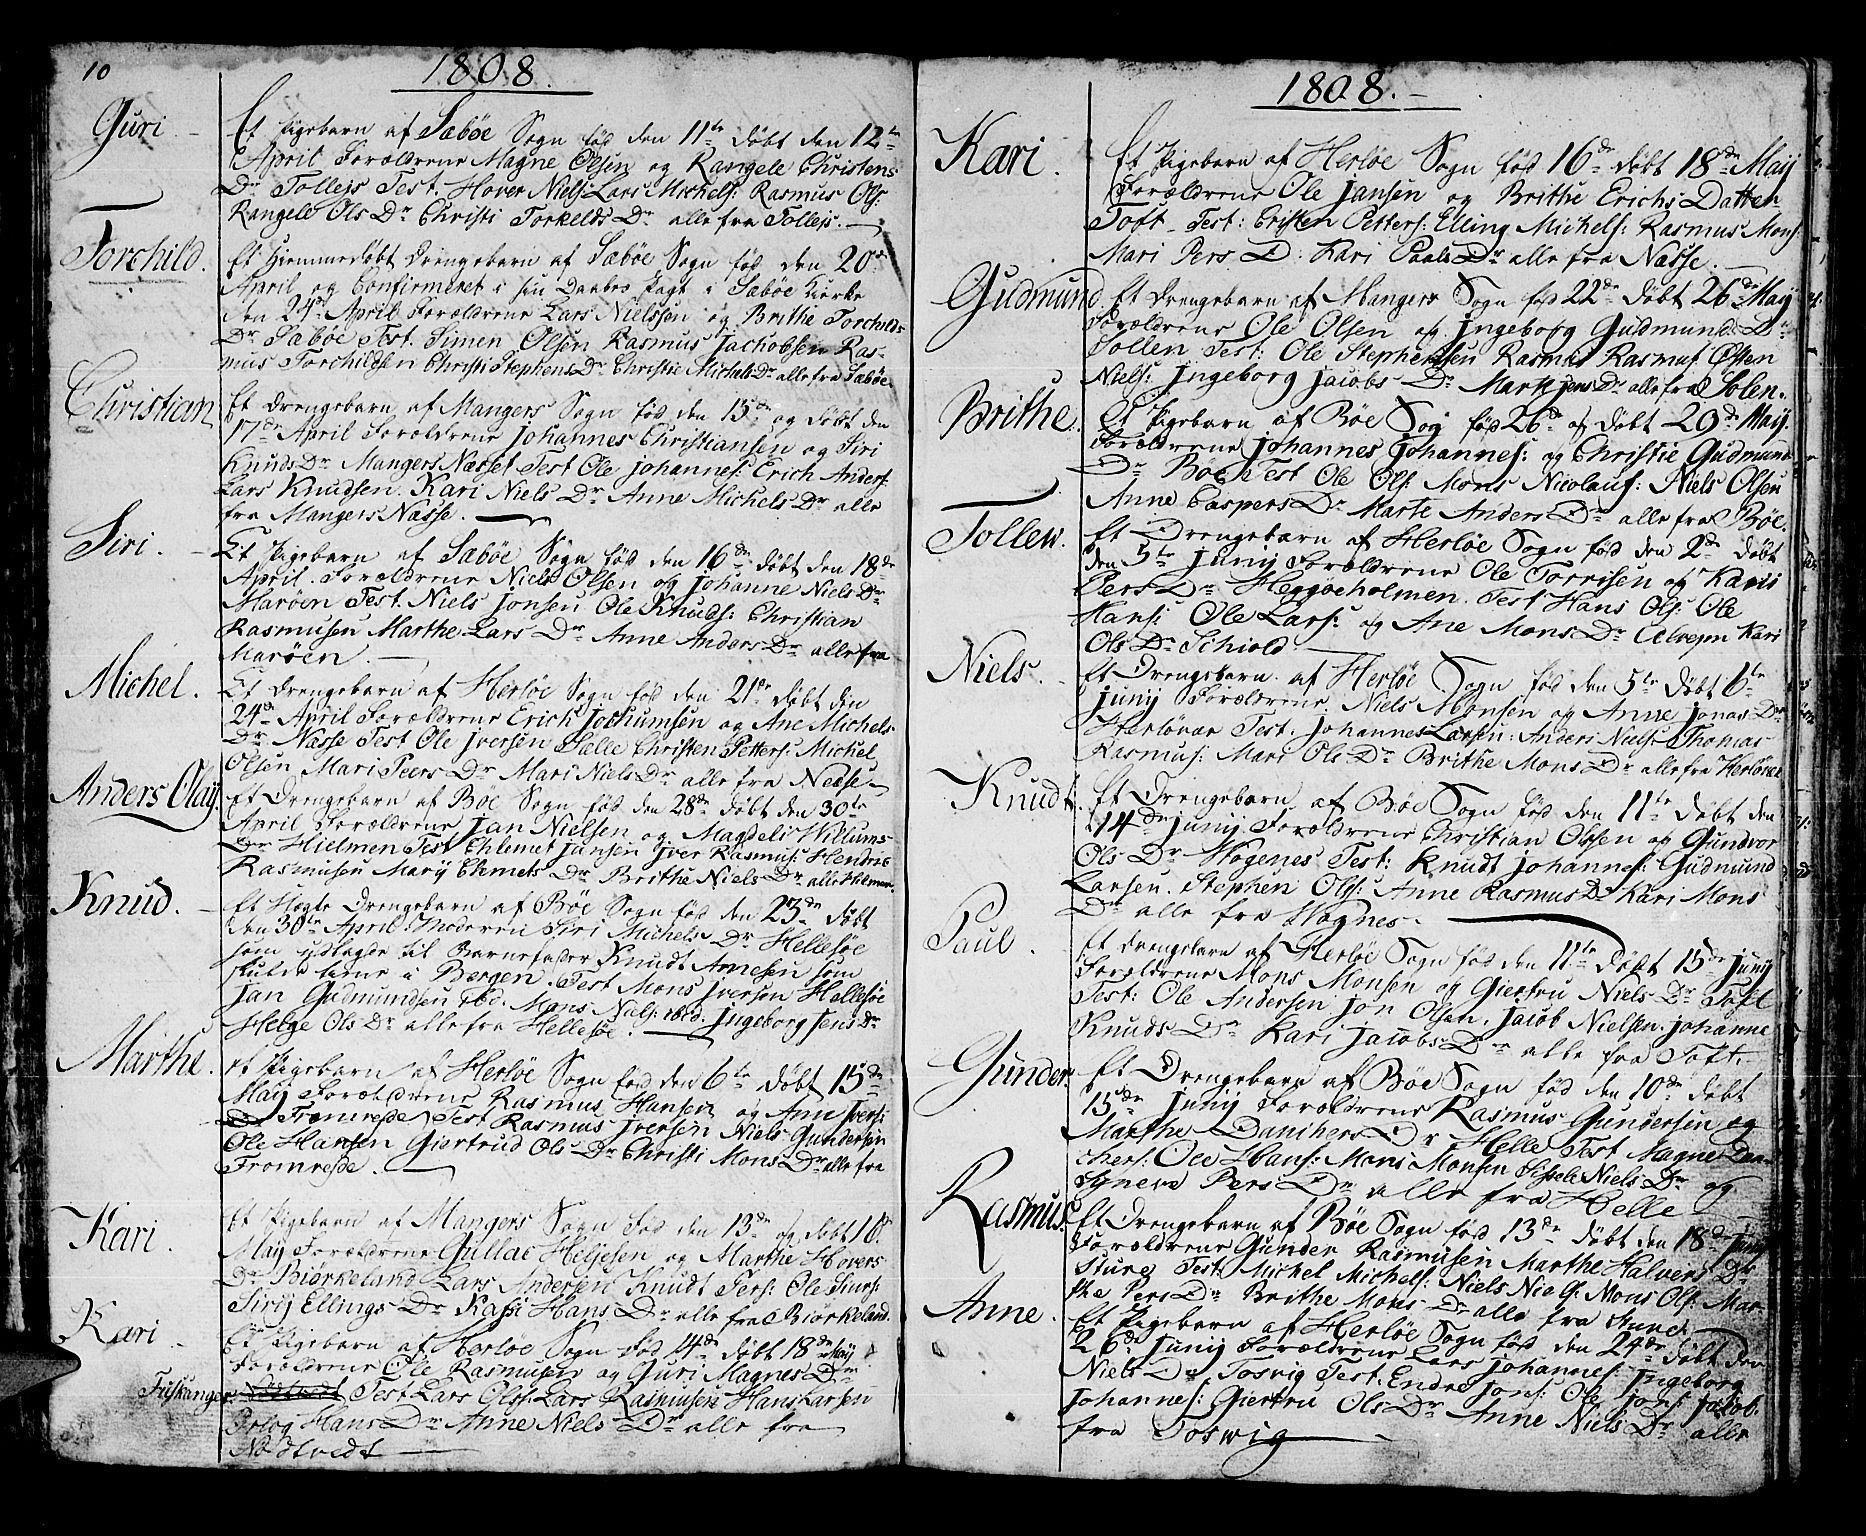 10
1808.
Guri
Et Pigebarn af Sæbøe Sogn fød den 11te døbt den 12te
April Forældrene Magne Olsen og Rangele Christens
Dr Tolleis Test. Hover Niels: Lars Michels: Rasmus Ols:
Rangele Ols Dr Christi Torkelds Dr alle fra Tolleis.
Torchild.
Et Hiemmedøbt Drengebarn af Sæbøe Sogn fød den 20de
April og Confirmeret i sin Daabes Pagt i Sæbøe Kierke
den 24de April Forældrene Lars Nielssen og Brithe Torchilds
Dr Sæbøe Test. Simen Olsen Rasmus Jachobsen Ras-
mus Torchildsen Christi Stephens Dr Christie Michels Dr alle fra Sæbøe
Christian
Et Drengebarn af Mangers Sogn fød den 15de og døbt den
17de April Forældrene Johannes Christiansen og Siri
Knuds Dr Mangers Næsset Test Ole Johannes: Erich Anders:
Lars Knudsen. Kari Niels Dr Anne Michels Dr alle
fra Mangers Næsse.
Siri.
Et Pigebarn af Sæbøe Sogn fød den 16de døbt den 18de
April. Forældrene Niels Olsen og Johanne Niels Dr
Marøen Test. Niels Jonsen Ole Knuds: Christian
Rasmusen Marthe Lars Dr Anne Anders Dr alle fra
Marøen.
Michel.
Et Drengebarn af Herløe Sogn fød den 21de døbt den
24de April Forældrene Erich Jochumsen og Ane Michels
Dr Næsse Test Ole Iversen Sælle Christen Petters: Michel
Olsen Mari Peers Dr Mari Niels Dr alle fra Næsse
Anders Olay.
Et Drengebarn af Bøe Sogn fød den 28de døbt den 30te
April Forældrene Jan Nielsen og Magdeli Willums
Dr Hielmen Test Ehlemet Jansen Iver Rasmus: Hendric
Rasmusen Marij Ehmets Dr Brithe Niels Dr alle Hilmen
Knud.
Et Uægte Drengebarn af Bøe Sogn fød den 23de døbt
den 30te April Moderen Siri Michels Dr Hellesøe
som udlagde til Barnefader Knudt Arnesen som
skulde tiene i Bergen. Test Mons Iversen Hellesøe
Jan Gudmundsen ibd. Mons Niels: ibid: Ingeborg Jens Dr
Helge Ols Dr alle fra Hellesøe.
Marthe.
et Pigebarn af Herløe Sogn fød den 6te døbt 15de
Maij Forældrene Rasmus Hansen og Ane Ivers:
Dr Fromreide Test Rasmus Iversen Niels Gundersen
Ole Hansen Giertrud Ols Dr Christi Mons Dr alle fra
Fromreide.
Kari.
Et Pigebarn af Mangers Sogn fød den 13de og døbt 16de
Maij Forældrene Gullac Heljesen og Marthe Hovers
Dr Biørkeland Lars Andersen Knudt Pers: Ole Siurs:
Sirij Ellings Dr Kari Hans Dr alle fra Biørkeland.
Kari
Et Pigebarn af Herløe Sogn fød 14de døbt 18de Maij
Forældrene Ole Rasmusen og Guri Magnes Dr
Fuskanger Test Lars Ols: Lars Rasmusen Hans Larsen
Hans Dr Anne Niels Dr alle fra
Nødtvedt

1808.
Kari.
Et Pigebarn af Herløe Sogn fød 16de døbt 18de Maij
Forældrene Ole Jansen og Brithe Erichs Datter
Toft Test: Cristen Petters: Elling Michels: Rasmus Mons:
Mari Pers D. Kari Paals Dr alle fra Næsse.
Gudmund.
Et Drengebarn af Mangers Sogn fød 22de døbt 26de Maij
Forældrene Ole Olsen og Ingeborg Gudmunds Dr
Sollen Test: Ole Stephensen Rasmus Rasmus: Østen
Niels: Ingeborg Jacobs Dr Marte Jens Dr alle fra Solen.
Brithe.
Et Pigebarn af Bøe Sog fød 26de og døbt 29de Maij.
Forældrene Johannes Johannes: og Christie Gudmunds
Dr Boe Test Ole Ols: Mons Nicolaus: Niels Olsen
Anne Caspers Dr Marte Anders Dr alle fra Bøe.
Tollew.
Et Drengebarn af Herløe Sogn fød den 2de døbt
den 5te Junij Forældrene Ole Torrisen og Karii
Pers Dr Heggøeholmen. Test Hans Ols: Ole
Hans: Ole Lars: og Ane Mons Dr Kari
Ols Dr Schiold
Niels.
Et Drengebarn af Herløe Sogn fød den 5te døbt 6te
Junij Forældrene Niels Monsen og Anne Jonas Dr
Herløvær Test: Johannes Larsen: Anders Niels: Thomas
Rasmus: Mari Ols Dr Brithe Mons Dr alle fra Herløvæ
Knudt.
Et Drengebarn af Bøe Sogn fød den 11te døbt den
14de Junij Forældrene Christian Olsen og Gundvor
Ols Dr Wognes Test: Knudt Johannes: Gudmund
Larsen. Stephen Ols: Anne Rasmus D: Kari Mons
Dr alle fra Wognes.
Paul.
Et Drengebarn af Herløe Sogn fød den 11te døbt 15de Junij
Forældrene Mons Monsen og Giertru Niels Dr Toft
Test: Ole Andersen Jon Olsen. Jacob Nielsen. Johanne
Knuds Dr Kari Jacobs Dr alle fra Toft.
Gunder.
Et Drengebarn af Bøe Sogn fød den 10de døbt
15de Junij Forældrene Rasmus Gundersen og
Marthe Dr Helle Test Magne
Ole Hans: Mons Monsen Sissele Niels Dr og
Pers Dr alle fra Helle
Rasmus.
Et Drengebarn af Bøe Sogn fød 13de døbt den 18de Junij
Forældrene Gunder Rasmusen Marthe Halvers Dr
Sture Test: Michel Michels: Niels Niels: Mons Ols: Mar-
the Pers Dr Brithe Mons Dr alle fra Sture.
Anne.
Et Pigebarn af Herløe Sogn fød den 24de døbt den
26de Junij Forældrene Lars Johannes: Ingeborg
Niels Dr Toswig Test. Endre Jons: Ole Jons: Jacob
Johannes: Giertru Ols Dr Anne Niels Dr alle
fra Toswig